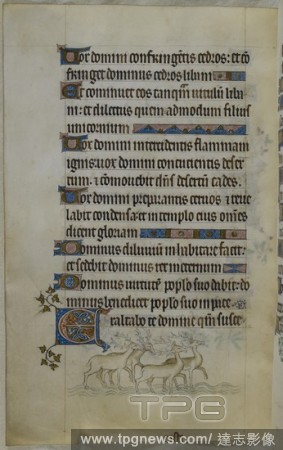 Vox domini confringētis cedros: et cō
fringet dominus cedros libani
Et cominuet eos tanquā vitulū liba
ni: et dilectus quem admodum filius
unicornium
Vox domini intercidentis flammam
ignis: vox domini concutientis deser
tum. ⁊ comovebit dn̄s desertū cades.
Vox domini preparantis cervos ⁊ reve
labit condensa: et in templo eius om̄es
dicent gloriam
Dominus diluviū inhabitare facit:
et sedebit dominus rex in eternum
Dominus virtutē pop̄lo suo dabit: do
minus benedicet pop̄lo suo in pace.
Exaltabo te domine qm̄ susce
TPG
www.tpgnews.com/ 達志影像